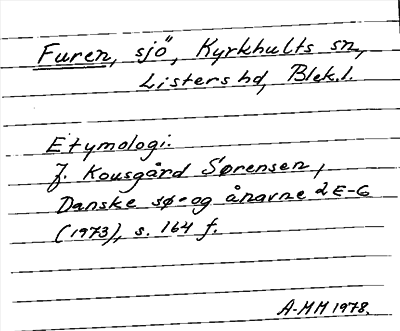 Furen, sjö, Kyrkhults sn,
Listers hd, Blek.l.
Etymologi:
J. Kousgård Sørensen,
Danske sø- og ånavne 2 E-G
(1973), s. 164 f.
A-MH 1978.